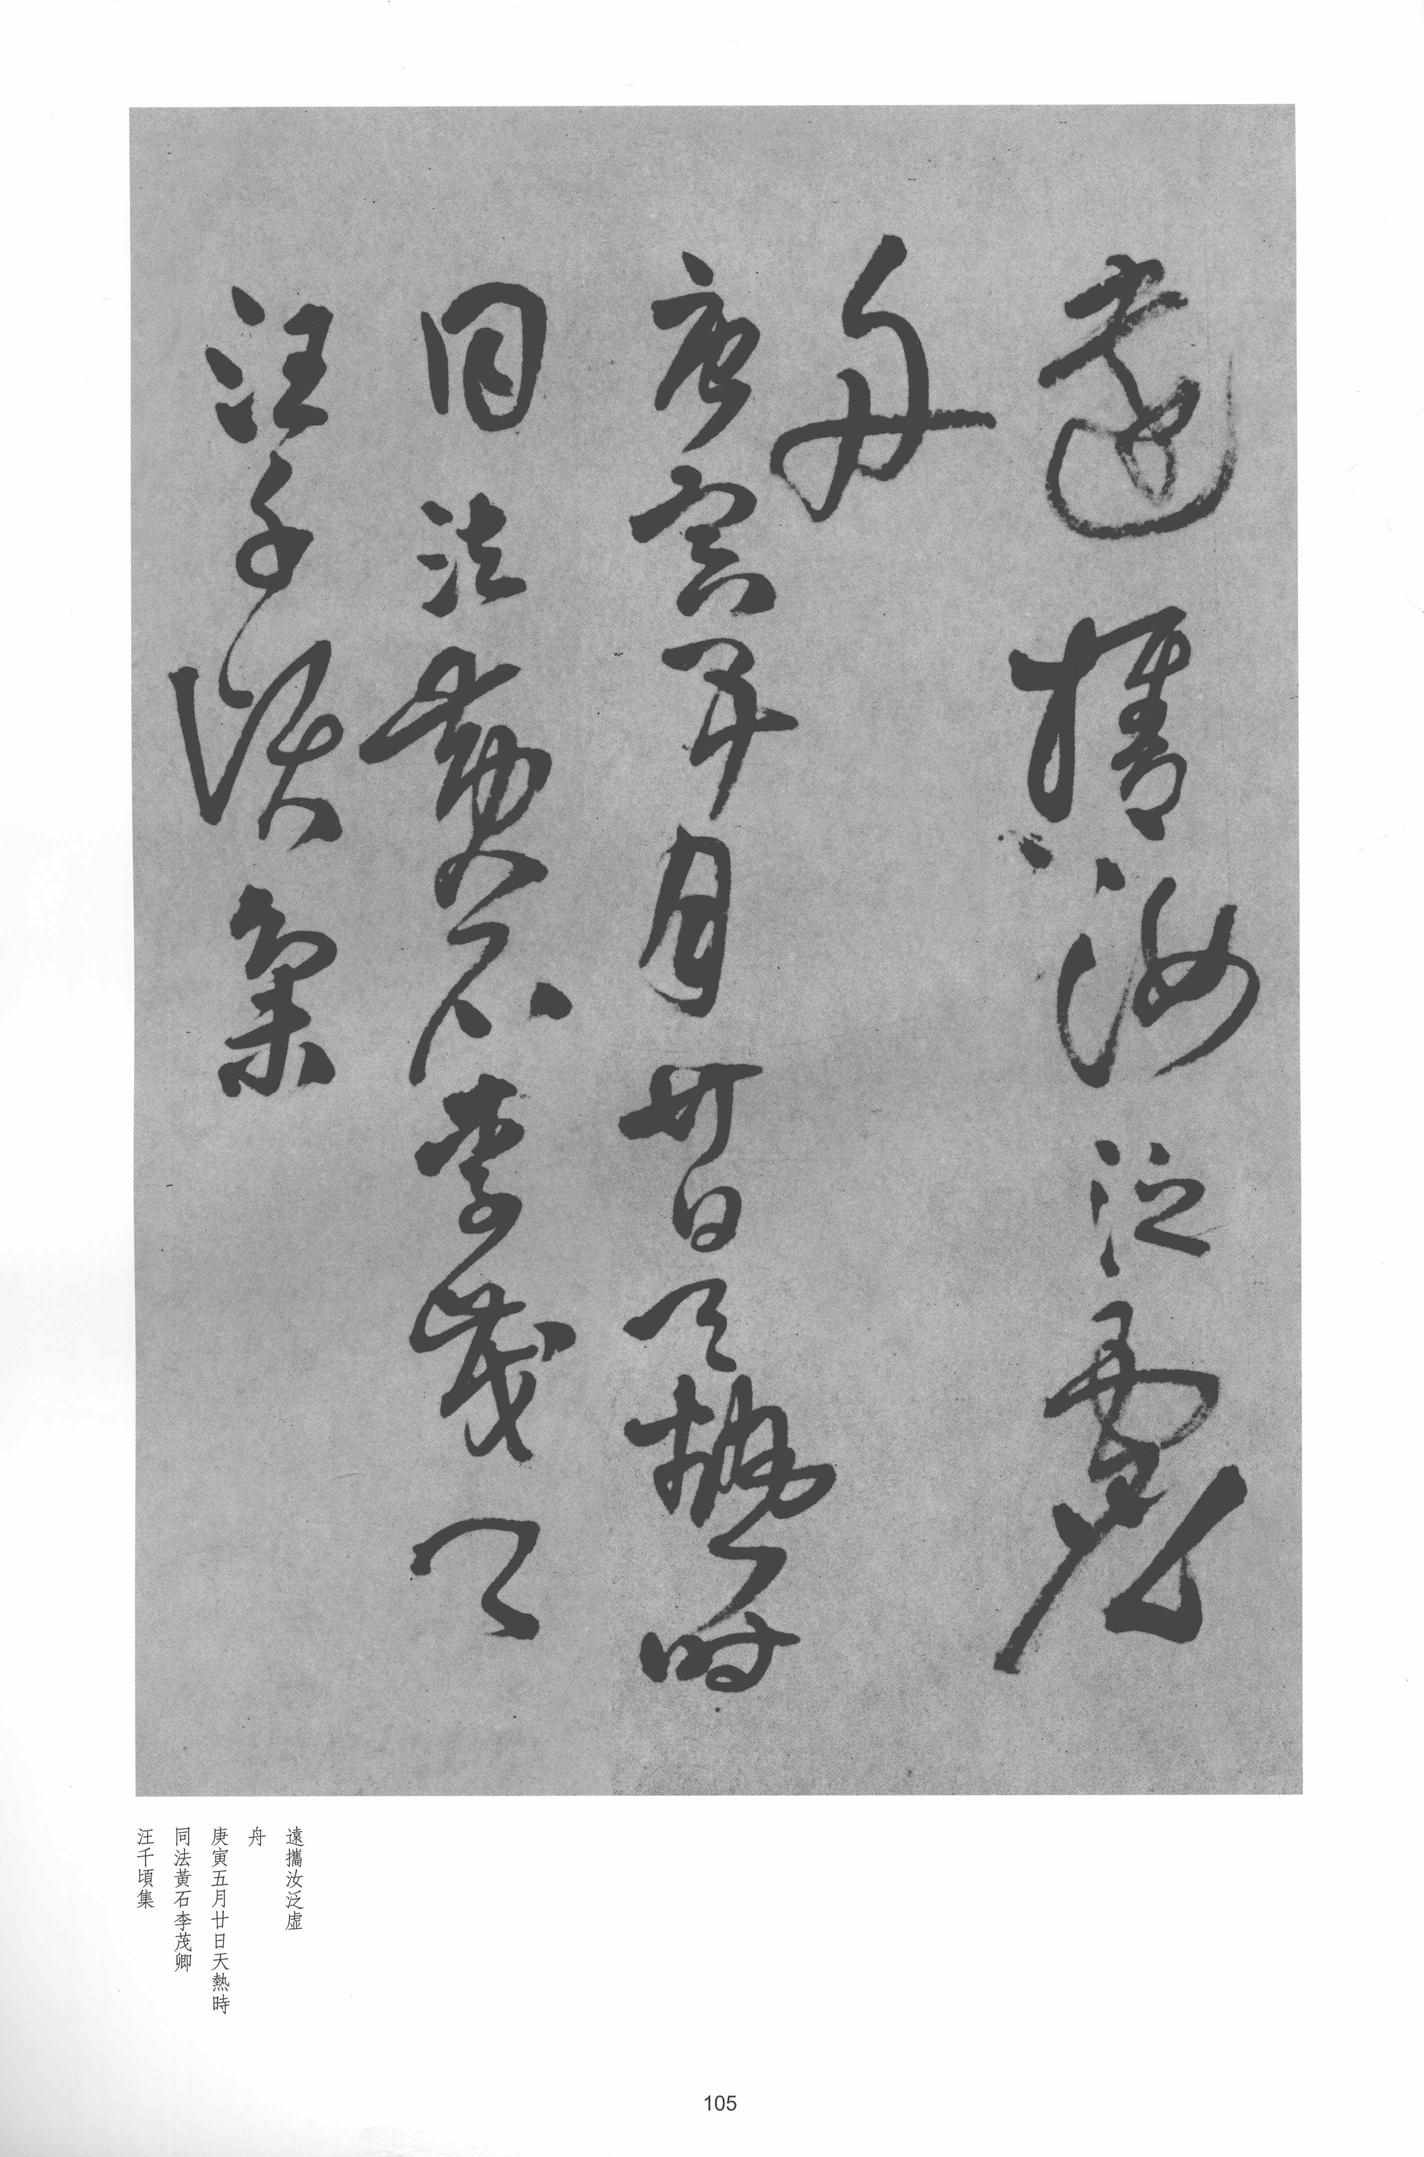 遠攜汝泛虛
舟
庚寅五月廿日天熱時
同法黃石李茂卿
汪千頃集
遠攜汝泛虛
舟
庚寅五月廿日天熱時
同法黃石李茂卿
汪千頃集
105